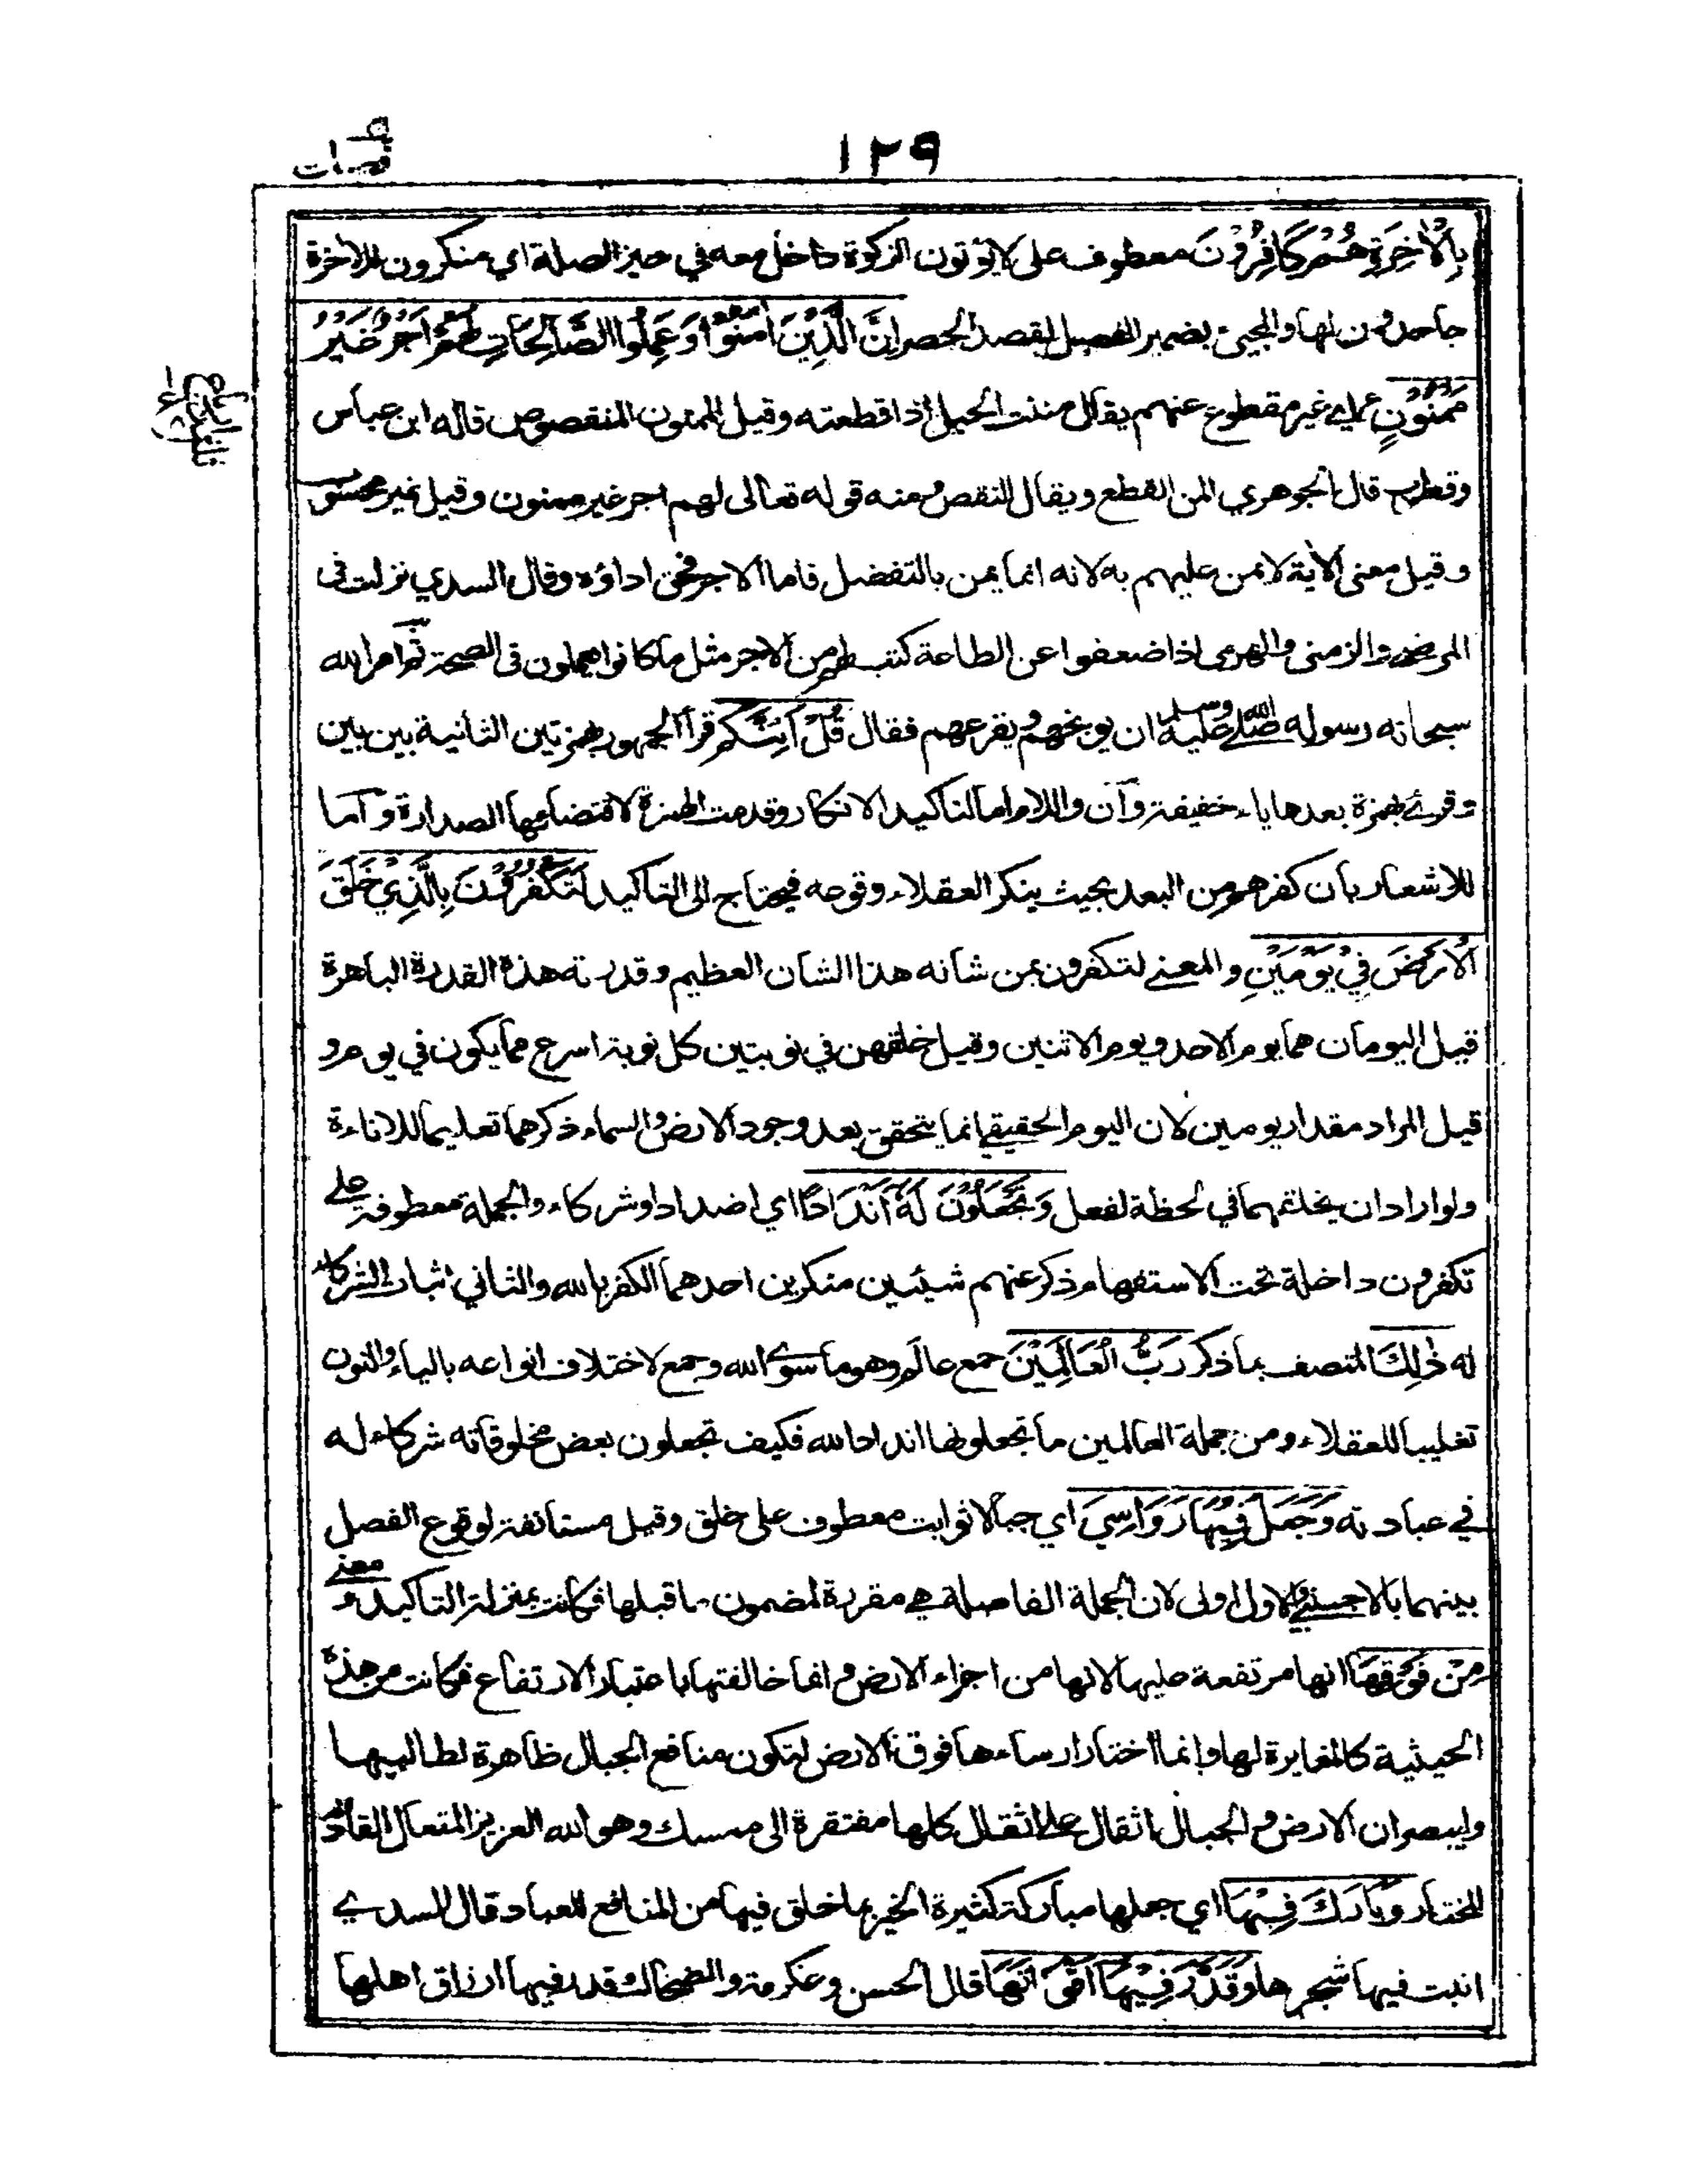 ١٢٩
بِالْاٰخِرَةِ هُمْ كَافِرُوْنَ معطوف على لا يؤتون الزكوة داخل معه في حيز الصلة اي منكرون للاخرة
جاحدون لها والمجئ بضمير الفصل لقصد الحصر اِنَّ الَّذِيْنَ اٰمَنُوْا وَعَمِلُوا الصَّالِحَاتِ لَهُمْ اَجْرٌ غَيْرُ
مَمْنُوْنٍ اي غير مقطوع عنهم يقال مننت الحبل اذا قطعته وقيل الممنون المنقوص قاله ابن عباس
وقطرب قال الجوهري المن القطع ويقال النقص ومنه قوله تعالى لهم اجر غير ممنون وقيل غير محسوب
وقيل معنى الاية لا يمن عليهم به لانه انما يمن بالتفضل فاما الاجر فحق اداؤه وقال السدي نزلت في
المرضى والزمنى والهرمى اذا ضعفوا عن الطاعة كتب لهم من الاجر مثل ما كانوا يعملون في الصحة ثم امر الله
سبحانه رسوله صلى الله عليه وسلم ان يوبخهم ويقرعهم فقال قُلْ اَئِنَّكُمْ قرأ الجمهور بهمزتين الثانية بين بين
وقرئ بهمزة بعدها ياء خفيفة وان واللام اما لتاكيد الانكار وقدمت الهمزة لاقتضائها الصدارة واما
للاشعار بان كفرهم من البعد بحيث ينكر العقلاء وقوعه فيحتاج الى التاكيد لَتَكْفُرُوْنَ بِالَّذِيْ خَلَقَ
الْاَرْضَ فِيْ يَوْمَيْنِ والمعنى لتكفرون بمن شانه هذا الشان العظيم وقدرته هذة القدرة الباهرة
قيل اليومان هما يوم الاحد ويوم الاثنين وقيل خلقهن في نوبتين كل نوبة اسرع مما يكون في يوم و
قيل المراد مقدار يومين لان اليوم الحقيقي انما يتحقق بعد وجود الارض والسماء ذكرهما تعليما للاناءة
ولو اراد ان يخلقهما في لحظة لفعل وَتَجْعَلُوْنَ لَهٗ اَنْدَادًا اي اضدادا وشركاء والجملة معطوفة على
تكفرون داخلة تحت الاستفهام ذكر عنهم شيئين منكرين احدهما الكفر بالله والثاني اثبات الشركاء
له ذٰلِكَ المتصف بما ذكر رَبُّ الْعَالَمِيْنَ جمع عالم وهو ما سوى الله وجمع لاختلاف انواعه بالياء والنون
تغليبا للعقلاء ومن جملة العالمين ما تجعلونها اندادا لله فكيف تجعلون بعض مخلوقاته شركاء له
في عبادته وَجَعَلَ فِيْهَا رَوَاسِيَ اي جبالا ثوابت معطوف على خلق وقيل مستانفة لوقوع الفصل
بينهما بالاجنبي والاول اولى لان الجملة الفاصلة هي مقررة لمضمون ما قبلها فكانت بمنزلة التاكيد ومعنى
مِنْ فَوْقِهَا انها مرتفعة عليها لانها من اجزاء الارض وانما خالفتها باعتبار الارتفاع فكانت من هذه
الحيثية كالمغايرة لها وانما اختار ارساءها فوق الارض لتكون منافع الجبال ظاهرة لطالبيها
وليبصر ان الارض والجبال اثقال على اثقال كلها مفتقرة الى ممسك وهو الله العزيز المتعال القادر
المختار وَبَارَكَ فِيْهَا اي جعلها مباركة كثيرة الخير بما خلق فيها من المنافع للعباد قال السدي
انبت فيها شجرها وَقَدَّرَ فِيْهَا اَقْوَاتَهَا قال الحسن وعكرمة والضحاك قدر فيها ارزاق اهلها